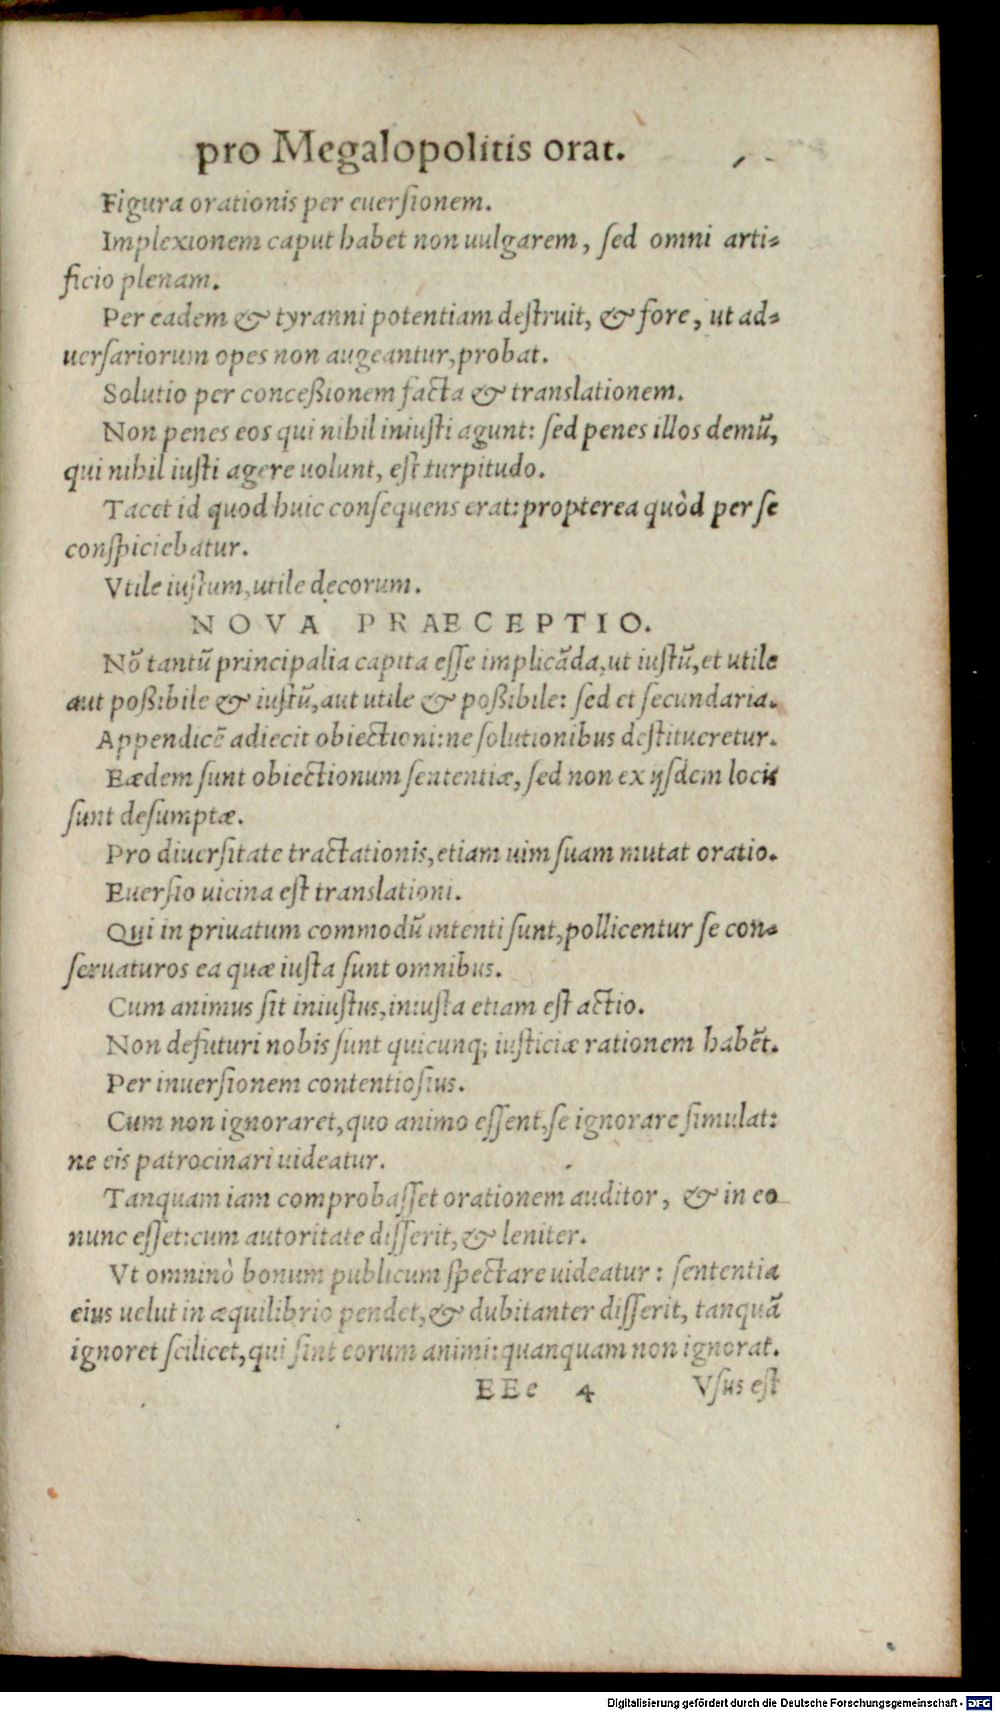 pro Megalopolitis orat.
Figura orationis per euerſionem.
Implexionem caput habet non uulgarem, ſed omni arti-
ficio plenam.
Per eadem & tyranni potentiam deſtruit, & fore, ut ad-
uerſariorum opes non augeantur, probat.
Solutio per conceßionem facta & translationem.
Non penes eos qui nihil iniuſti agunt: ſed penes illos demū,
qui nihil iuſti agere uolunt, eſt turpitudo.
Tacet id quod huic conſequens erat: propterea quòd per ſe
conſpiciebatur.
Vtile iuſtum, utile decorum.
NOVA PRAECEPTIO.
Nō tantū principalia capita eſſe implicāda, ut iuſtū, et utile
aut poßibile & iuſtū, aut utile & poßibile: ſed et ſecundaria.
Appendicē adiecit obiectioni: ne ſolutionibus deſtitueretur.
Eædem ſunt obiectionum ſententiæ, ſed non ex ijſdem locis
ſunt deſumptæ.
Pro diuerſitate tractationis, etiam uim ſuam mutat oratio.
Euerſio uicina eſt translationi.
Qui in priuatum commodū intenti ſunt, pollicentur ſe con-
ſeruaturos ea quæ iuſta ſunt omnibus.
Cum animus ſit iniuſtus, iniuſta etiam eſt actio.
Non defuturi nobis ſunt quicunq; iuſticiæ rationem habēt.
Per inuerſionem contentioſius.
Cum non ignoraret, quo animo eſſent, ſe ignorare ſimulat:
ne eis patrocinari uideatur.
Tanquam iam comprobaſſet orationem auditor, & in eo
nunc eſſet: cum autoritate diſſerit, & leniter.
Vt omninò bonum publicum ſpectare uideatur: ſententia
eius uelut in æquilibrio pendet, & dubitanter diſſerit, tanquā
ignoret ſcilicet, qui ſint eorum animi: quanquam non ignorat.
EEe 4 Vſus eſt
Digitalisierung gefördert durch die Deutsche Forschungsgemeinschaft - DFG